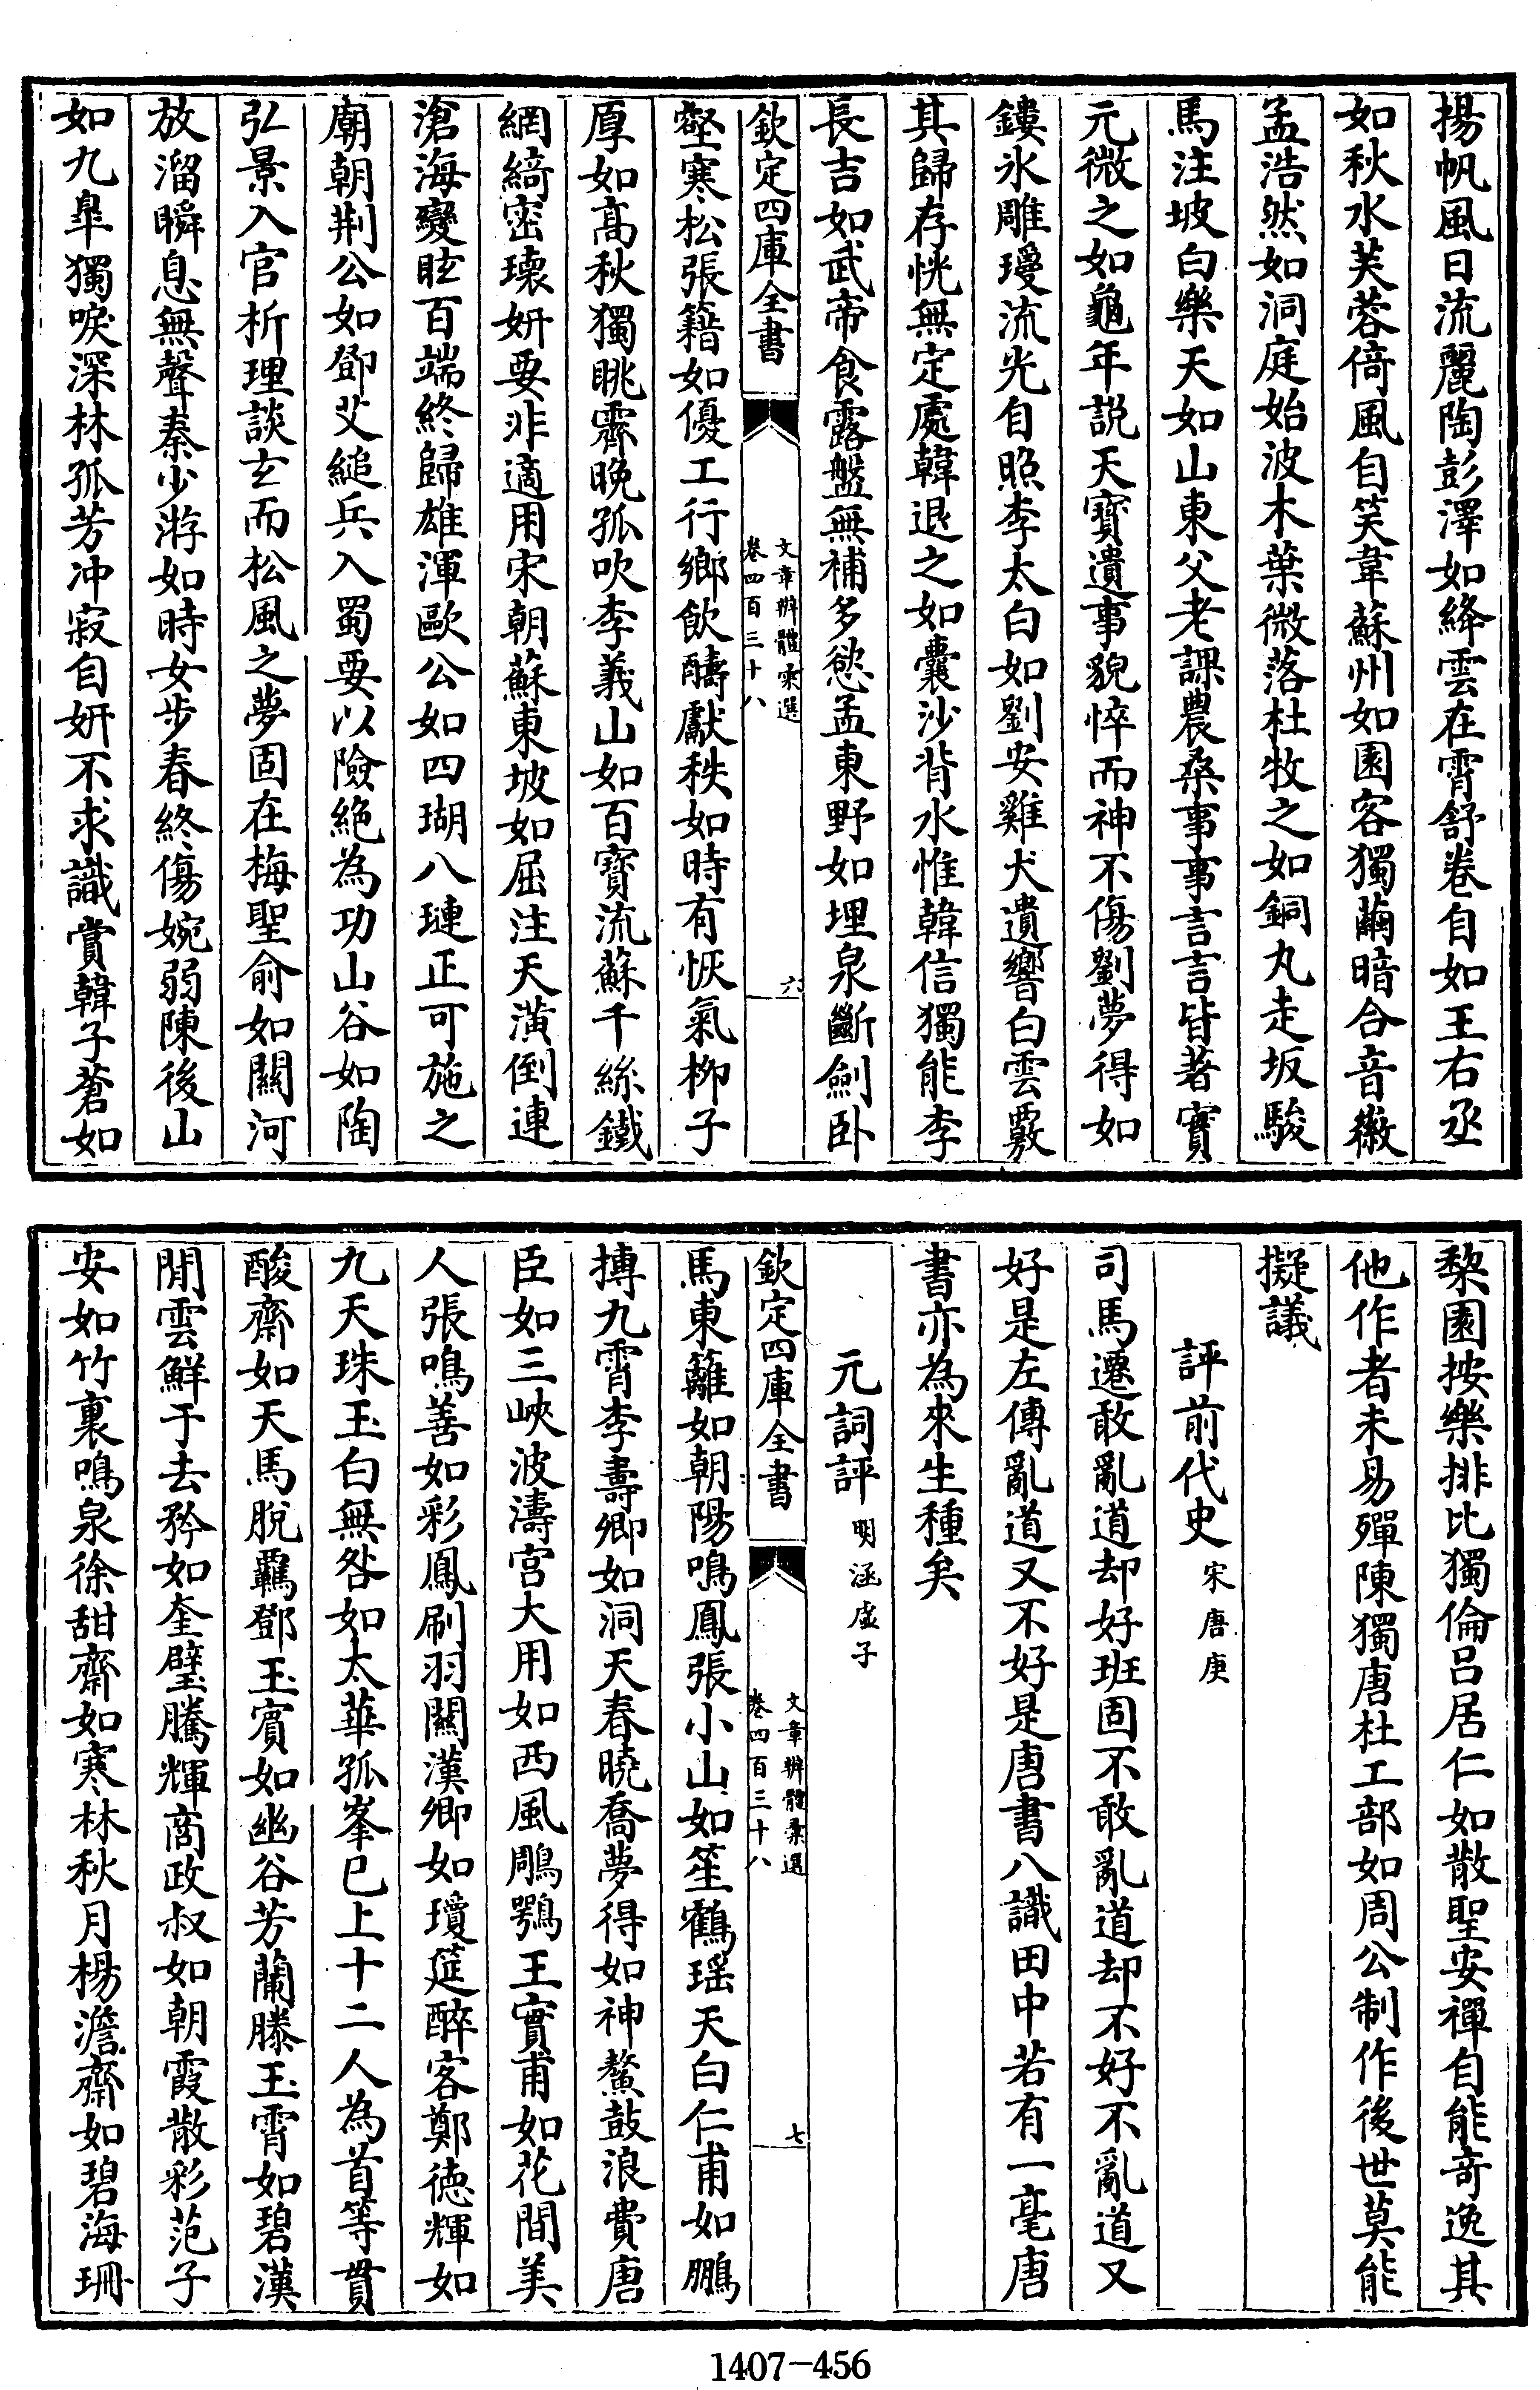 揚帆風日流麗陶彭澤如絳雲在霄舒卷自如王右丞
如秋水芙蓉倚風自笑韋蘇州如園客獨繭暗合音徽
孟浩然如洞庭始波木葉微落杜牧之如銅丸走坂駿
馬注坡白樂天如山東父老課農桑事事言言皆著實
元微之如龜年説天寶遺事貌悴而神不傷劉夢得如
鏤氷雕瓊流光自照李太白如劉安雞犬遺響白雲覈
其歸存恍無定處韓退之如囊沙背水惟韓信獨能李
長吉如武帝食露盤無補多慾孟東野如埋泉斷劍卧
欽定四庫全書
文章辨體彙選
卷四百三十八
六
壑寒松張籍如優工行鄉飲醻獻秩如時有恢氣柳子
厚如高秋獨眺霽晩孤吹李義山如百寶流蘇千絲鐵
網綺密瓌妍要非適用宋朝蘇東坡如屈注天潢倒連
滄海變眩百端終歸雄渾歐公如四瑚八璉正可施之
廟朝荆公如鄧艾縋兵入蜀要以險絶為功山谷如陶
弘景入官析理談玄而松風之夢固在梅聖俞如關河
放溜瞬息無聲秦少游如時女步春終傷婉弱陳後山
如九臯獨唳深林孤芳冲寂自妍不求識賞韓子蒼如
棃園按樂排比獨倫吕居仁如散聖安禪自能竒逸其
他作者未易殫陳獨唐杜工部如周公制作後世莫能
擬議
評前代史 宋唐庚
司馬遷敢亂道却好班固不敢亂道却不好不亂道又
好是左傳亂道又不好是唐書八識田中若有一毫唐
書亦為來生種矣
元詞評 明涵虚子
欽定四庫全書
文章辨體彙選
卷四百三十八
七
馬東籬如朝陽鳴鳳張小山如笙鶴瑶天白仁甫如鵬
搏九霄李壽卿如洞天春曉喬夢得如神鰲鼓浪費唐
臣如三峽波濤宫大用如西風鵰鶚王實甫如花間美
人張鳴善如彩鳳刷羽關漢卿如瓊筵醉客鄭徳輝如
九天珠玉白無咎如太華孤峯已上十二人為首等貫
酸齋如天馬脫覊鄧玉賓如幽谷芳蘭滕玉霄如碧漢
閒雲鮮于去矜如奎璧騰輝商政叔如朝霞散彩范子
安如竹裏鳴泉徐甜齋如寒林秋月楊澹齋如碧海珊
1407-456